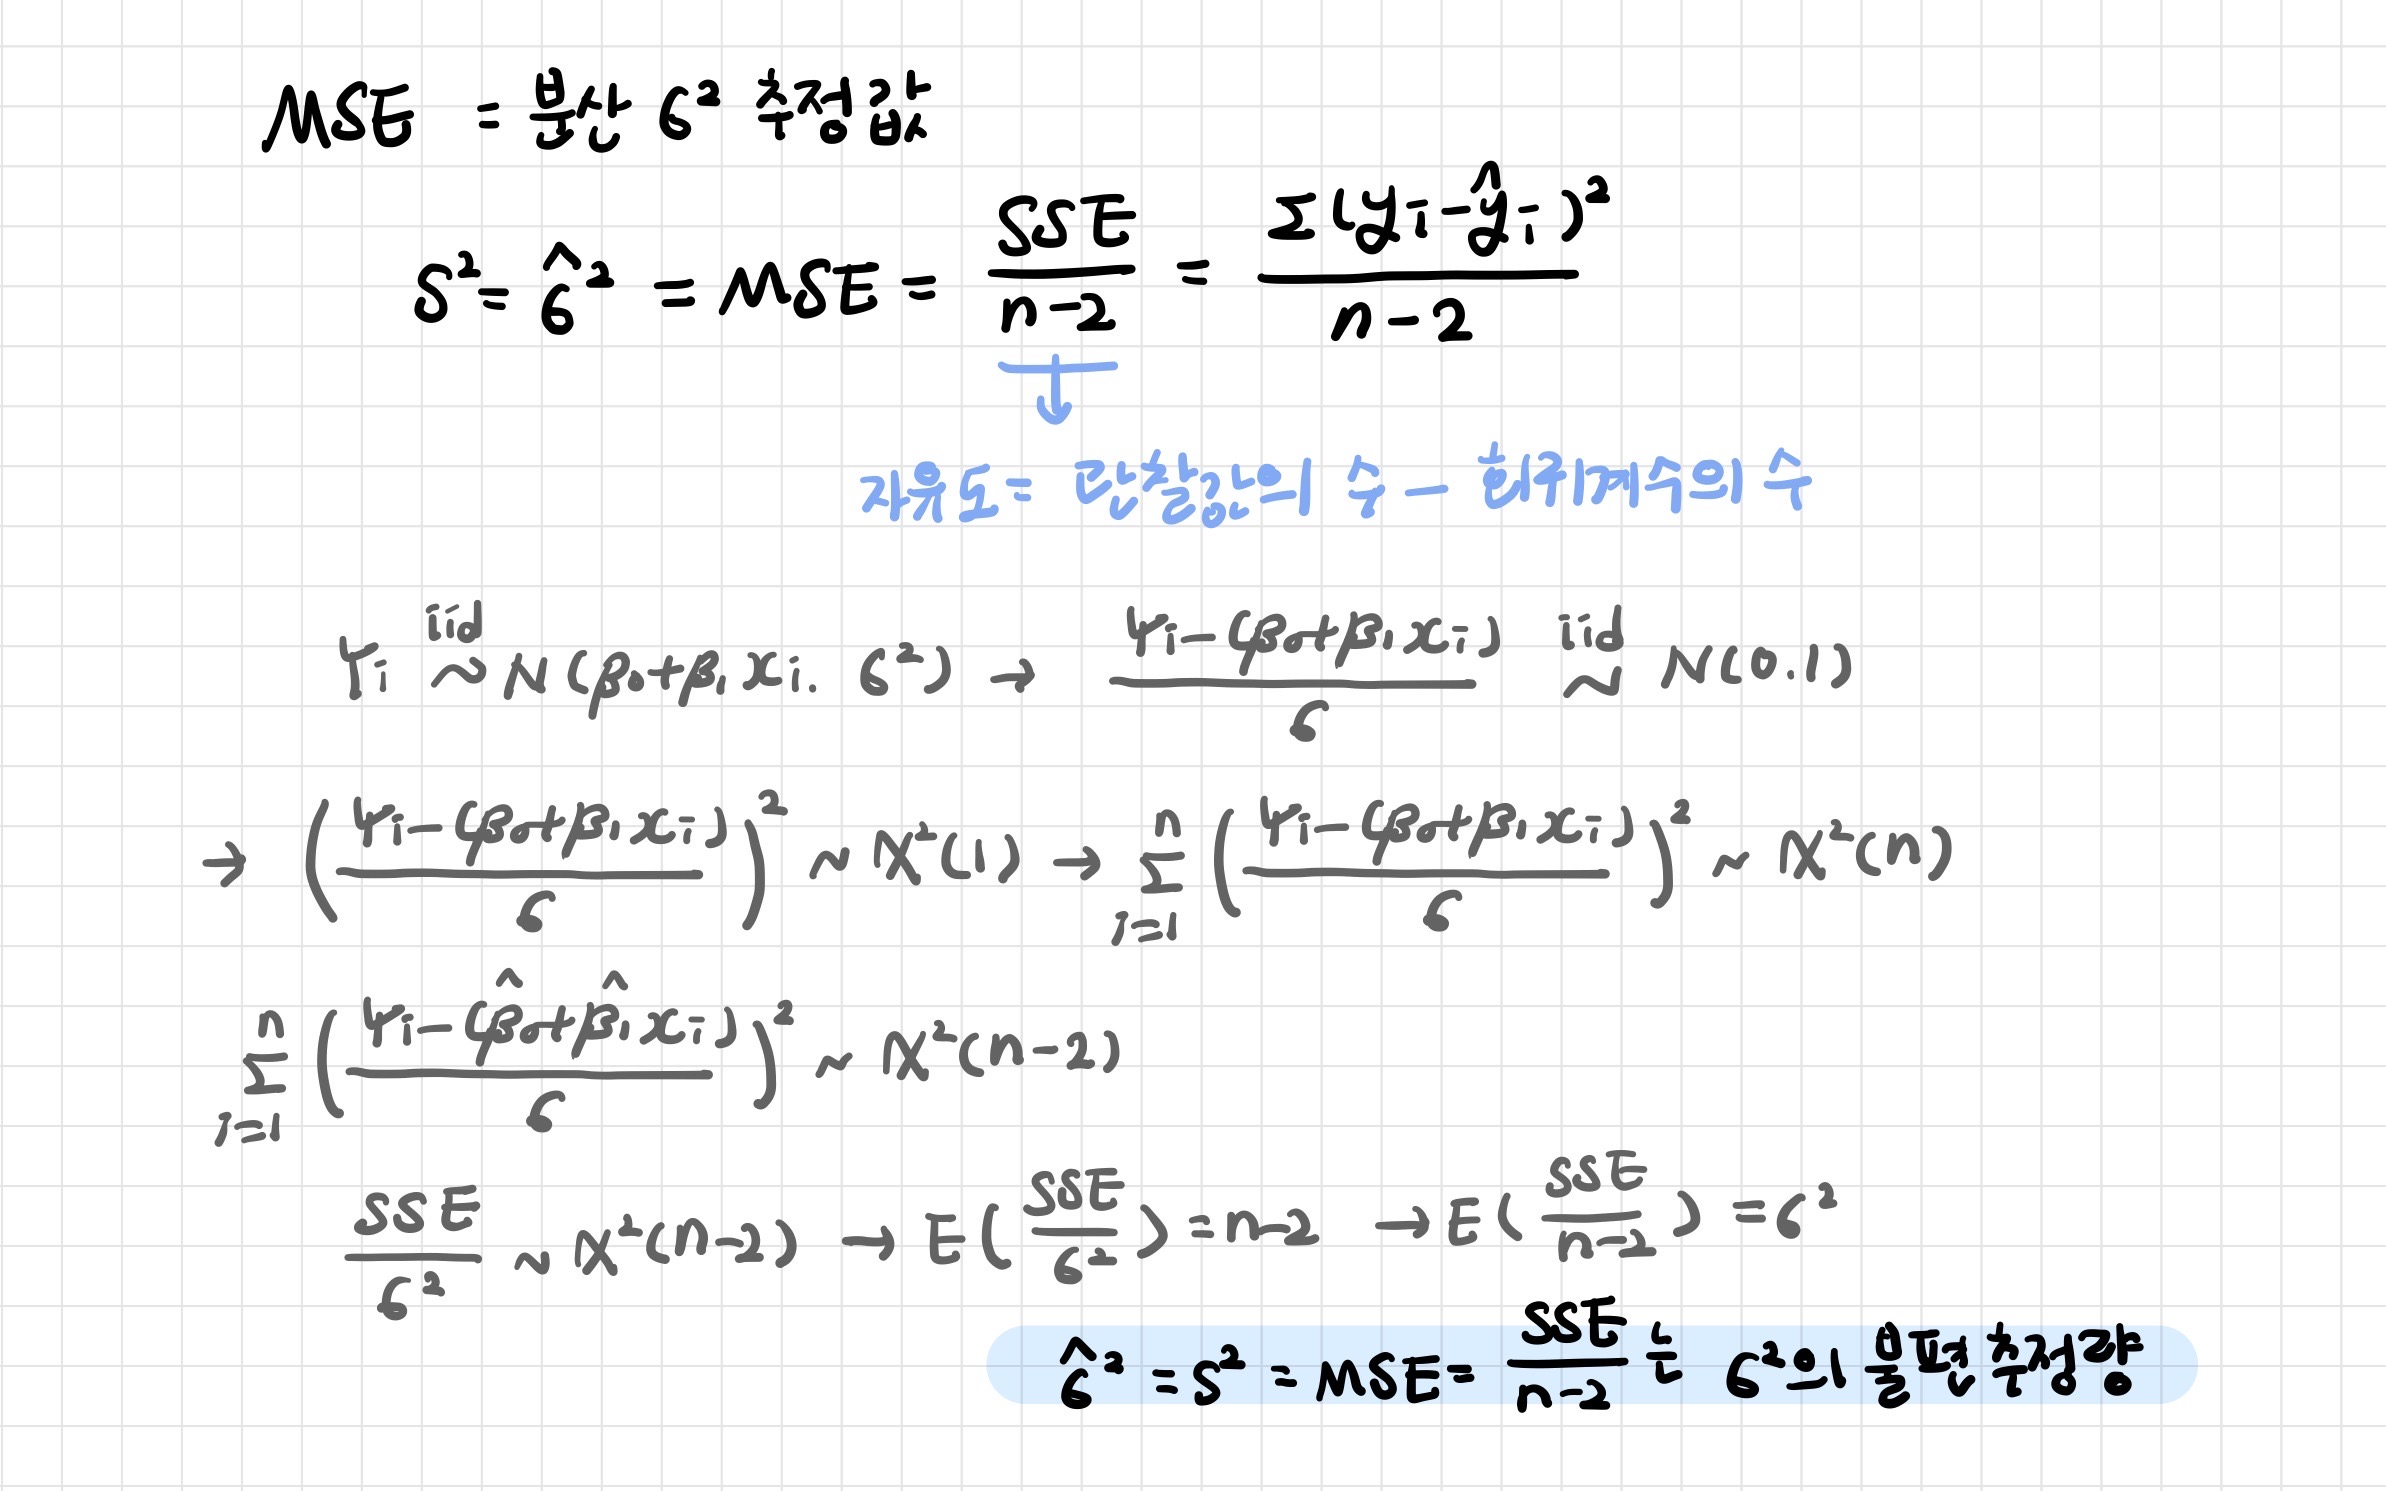 MSE = 분산 σ² 추정값
S² = σ̂² = MSE = SSE/(n-2) = Σ(yi-ŷi)²/(n-2)
↓
자유도 = 관찰값의 수 - 회귀계수의 수
Yi iid~ N(β0+β1xi. σ²) → (Yi-(β0+β1xi))/σ iid~ N(0.1)
→ ((Yi-(β0+β1xi))/σ)² ~ χ²(1) → Σ_{i=1}^{n} ((Yi-(β0+β1xi))/σ)² ~ χ²(n)
Σ_{i=1}^{n} ((Yi-(β̂0+β̂1xi))/σ)² ~ χ²(n-2)
SSE/σ² ~ χ²(n-2) → E(SSE/σ²) = n-2 → E(SSE/(n-2)) = σ²
σ̂² = S² = MSE = SSE/(n-2) 는 σ²의 불편추정량